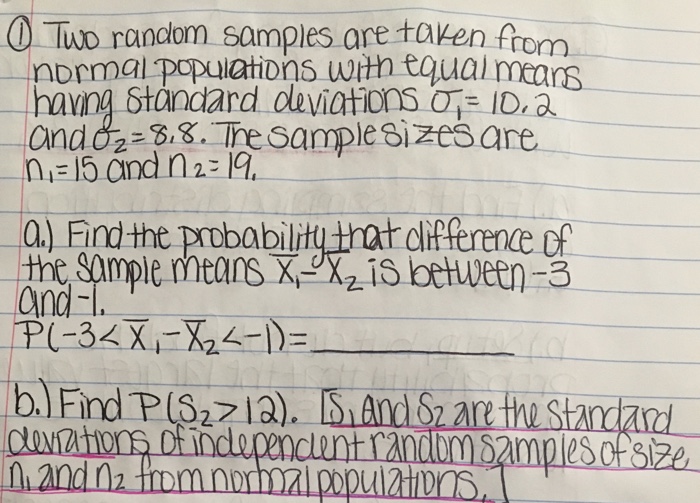 ① Two random samples are taken from
normal populations with equal means
having standard deviations σ₁ = 10.2
and σ₂ = 8.8. The sample sizes are
n₁ = 15 and n₂ = 19.
a.) Find the probability that difference of
the sample means X̄₁ - X̄₂ is between -3
and -1.
P(-3 < X̄₁ - X̄₂ < -1) = ________
b.) Find P(S₂ > 12). [S₁ and S₂ are the standard
deviations of independent random samples of size
n₁ and n₂ from normal populations.]